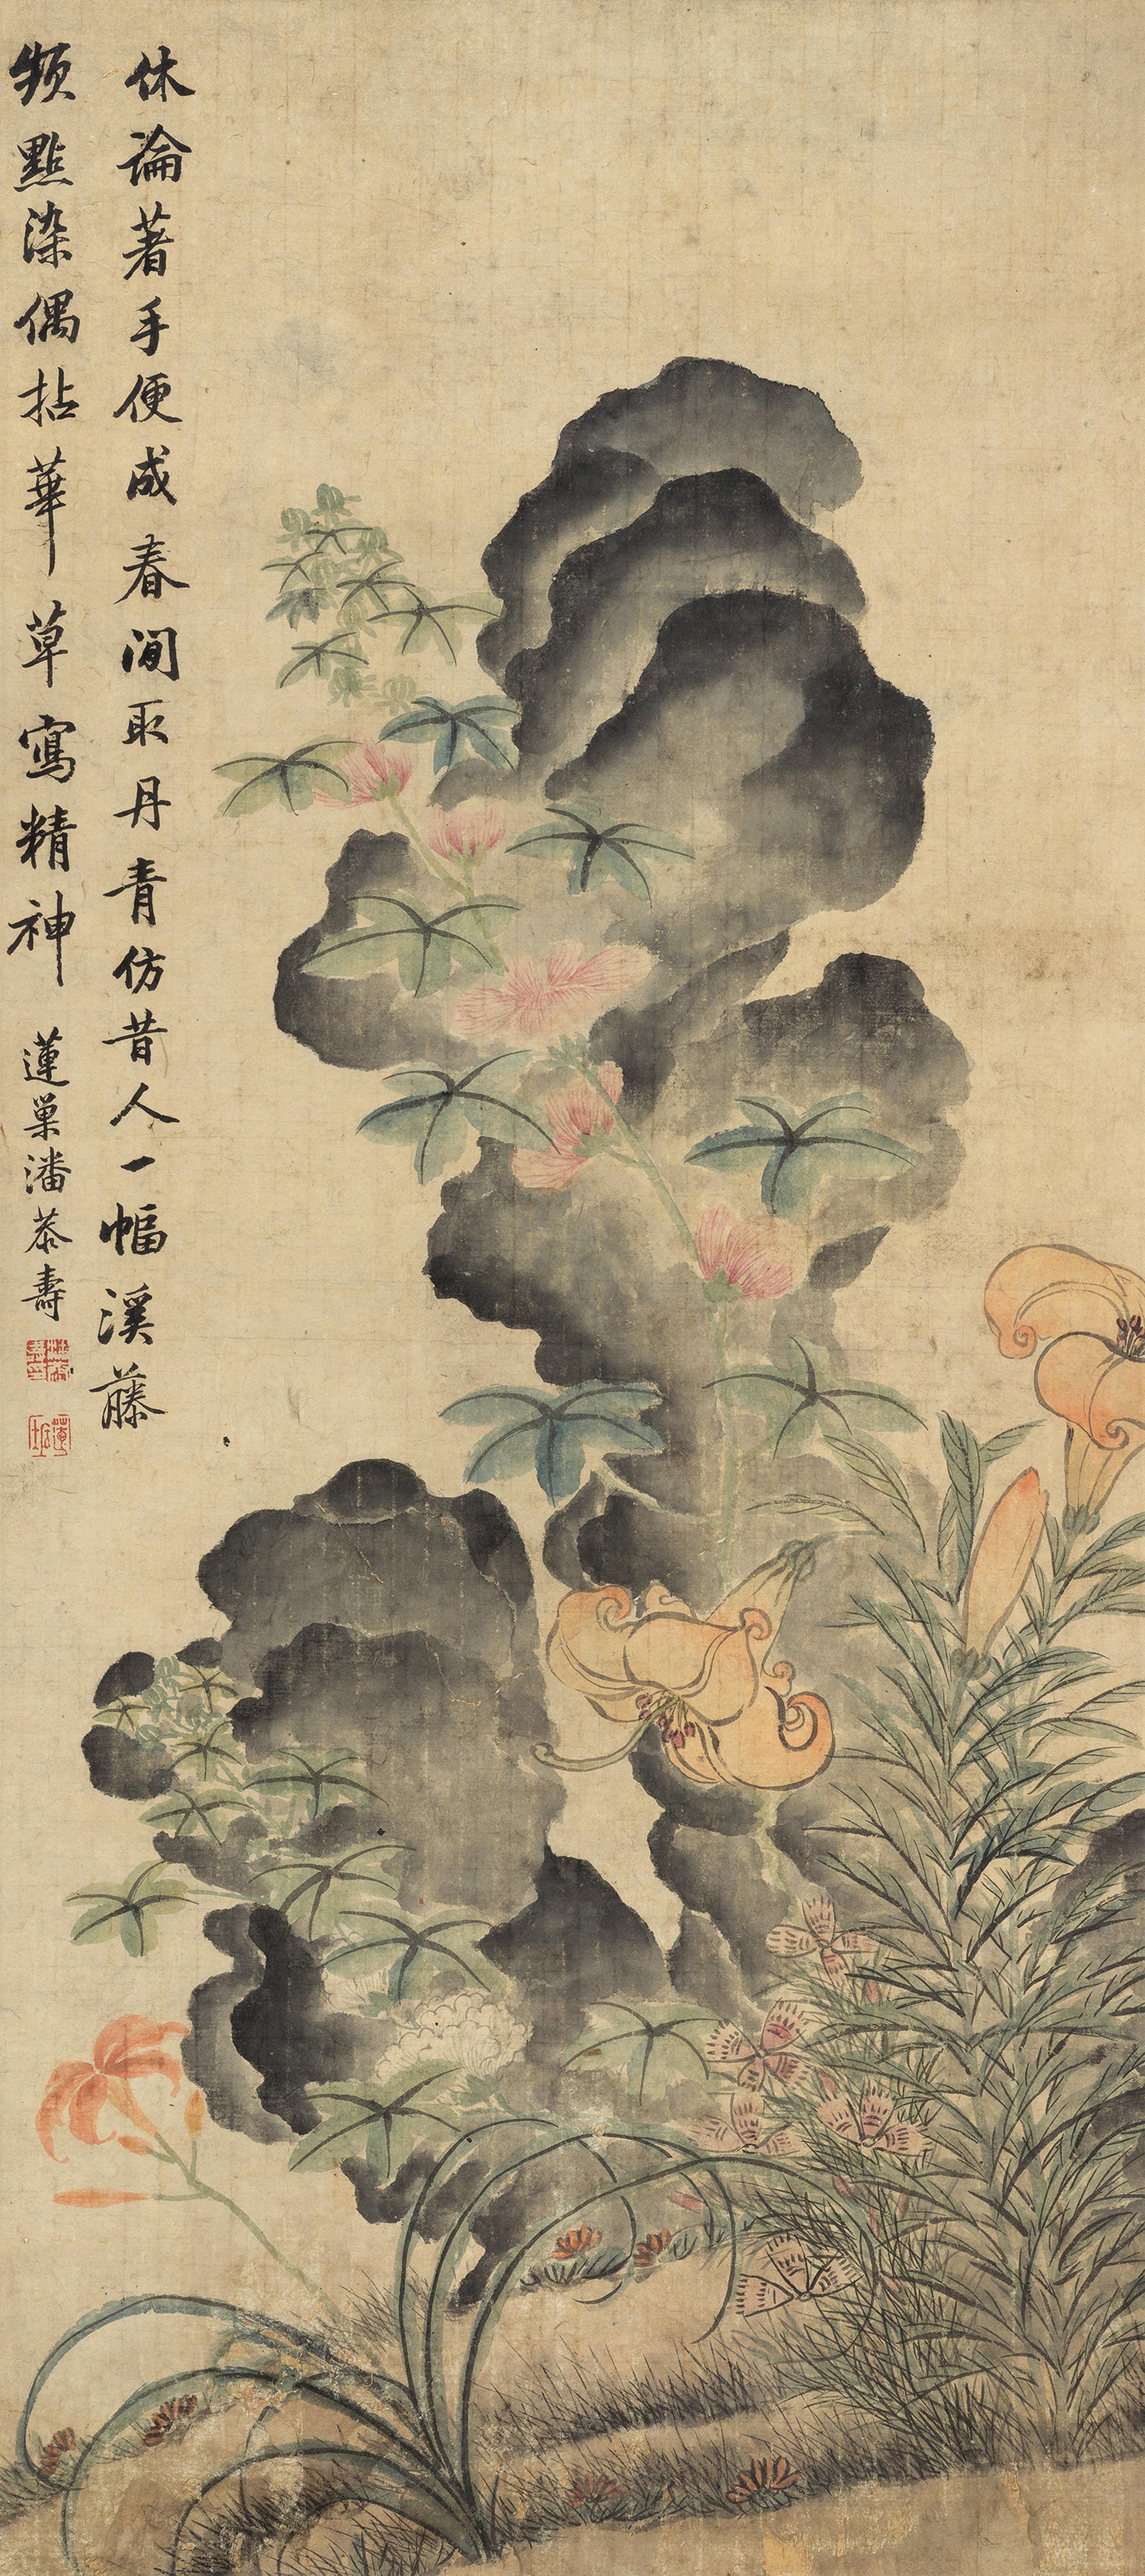 休論著手便成春閒取丹青仿昔人一幅溪藤
頻點染偶拈華草寫精神 蓮巢潘恭壽